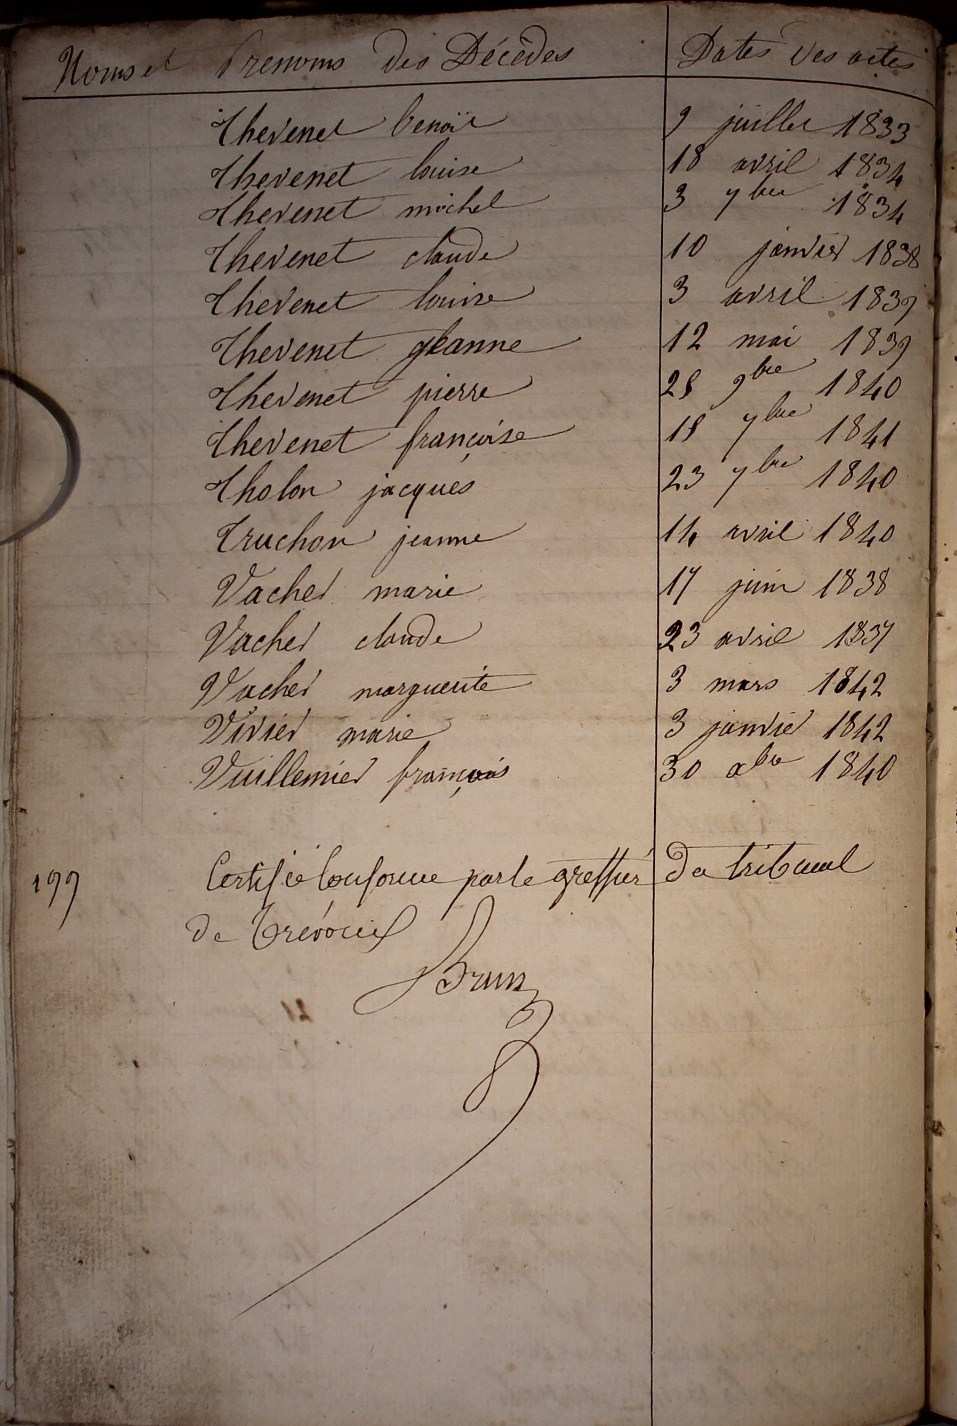 Noms et Prenoms des Décèdes Dates des actes
Thevenet benoit 9 juillet 1833
Thevenet louise 18 avril 1834
Thevenet michel 3 7bre 1834
Thevenet claude 10 janvier 1838
Thevenet louise 3 avril 1839
Thevenet jeanne 12 mai 1839
Thevenet pierre 28 9bre 1840
Thevenet françoise 18 7bre 1841
Tholon jacques 23 7bre 1840
Truchon jeanne 14 avril 1840
Vacher marie 17 juin 1838
Vacher claude 23 avril 1837
Vacher marguerite 3 mars 1842
Vivier marie 3 janvier 1842
Vuillemier françois 30 1840
199 Certifié Conforme par le greffier du tribunal
de Trévoux
Brun